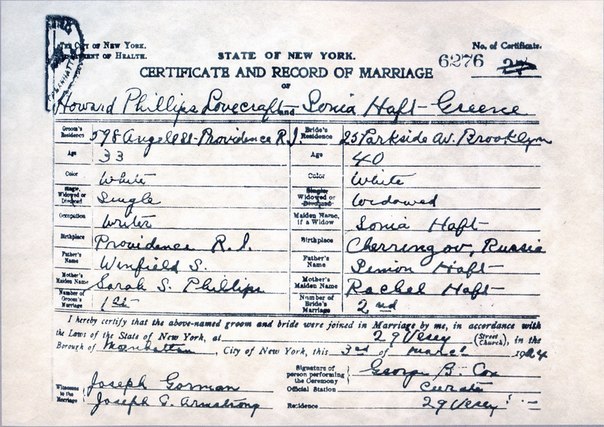 The City of New York.
Department of Health.
STATE OF NEW YORK.
No. of Certificate.
6276
CERTIFICATE AND RECORD OF MARRIAGE
OF
Howard Phillips Lovecraft and Sonia Haft-Greene
Groom's Residence 598 Angell St. Providence R.I. Bride's Residence 25 Parkside Av. Brooklyn
Age 33 Age 40
Color White Color White
Single, Widowed or Divorced Single Single Widowed or Divorced Widowed
Occupation Writer Maiden Name, if a Widow Sonia Haft
Birthplace Providence R.I. Birthplace Cherringov, Russia
Father's Name Winfield S. Father's Name Simion Haft
Mother's Maiden Name Sarah S. Phillips Mother's Maiden Name Rachel Haft
Number of Groom's Marriage 1st Number of Bride's Marriage 2nd
I hereby certify that the above-named groom and bride were joined in Marriage by me, in accordance with
the Laws of the State of New York, at 29 Vesey (Street Church), in the
Borough of Manhattan, City of New York, this 3rd of March 1924
Signature of person performing the Ceremony George B. Cox
Witnesses to the Marriage Joseph Gorman Official Station Curate
Joseph G. Armstrong Residence 29 Vesey